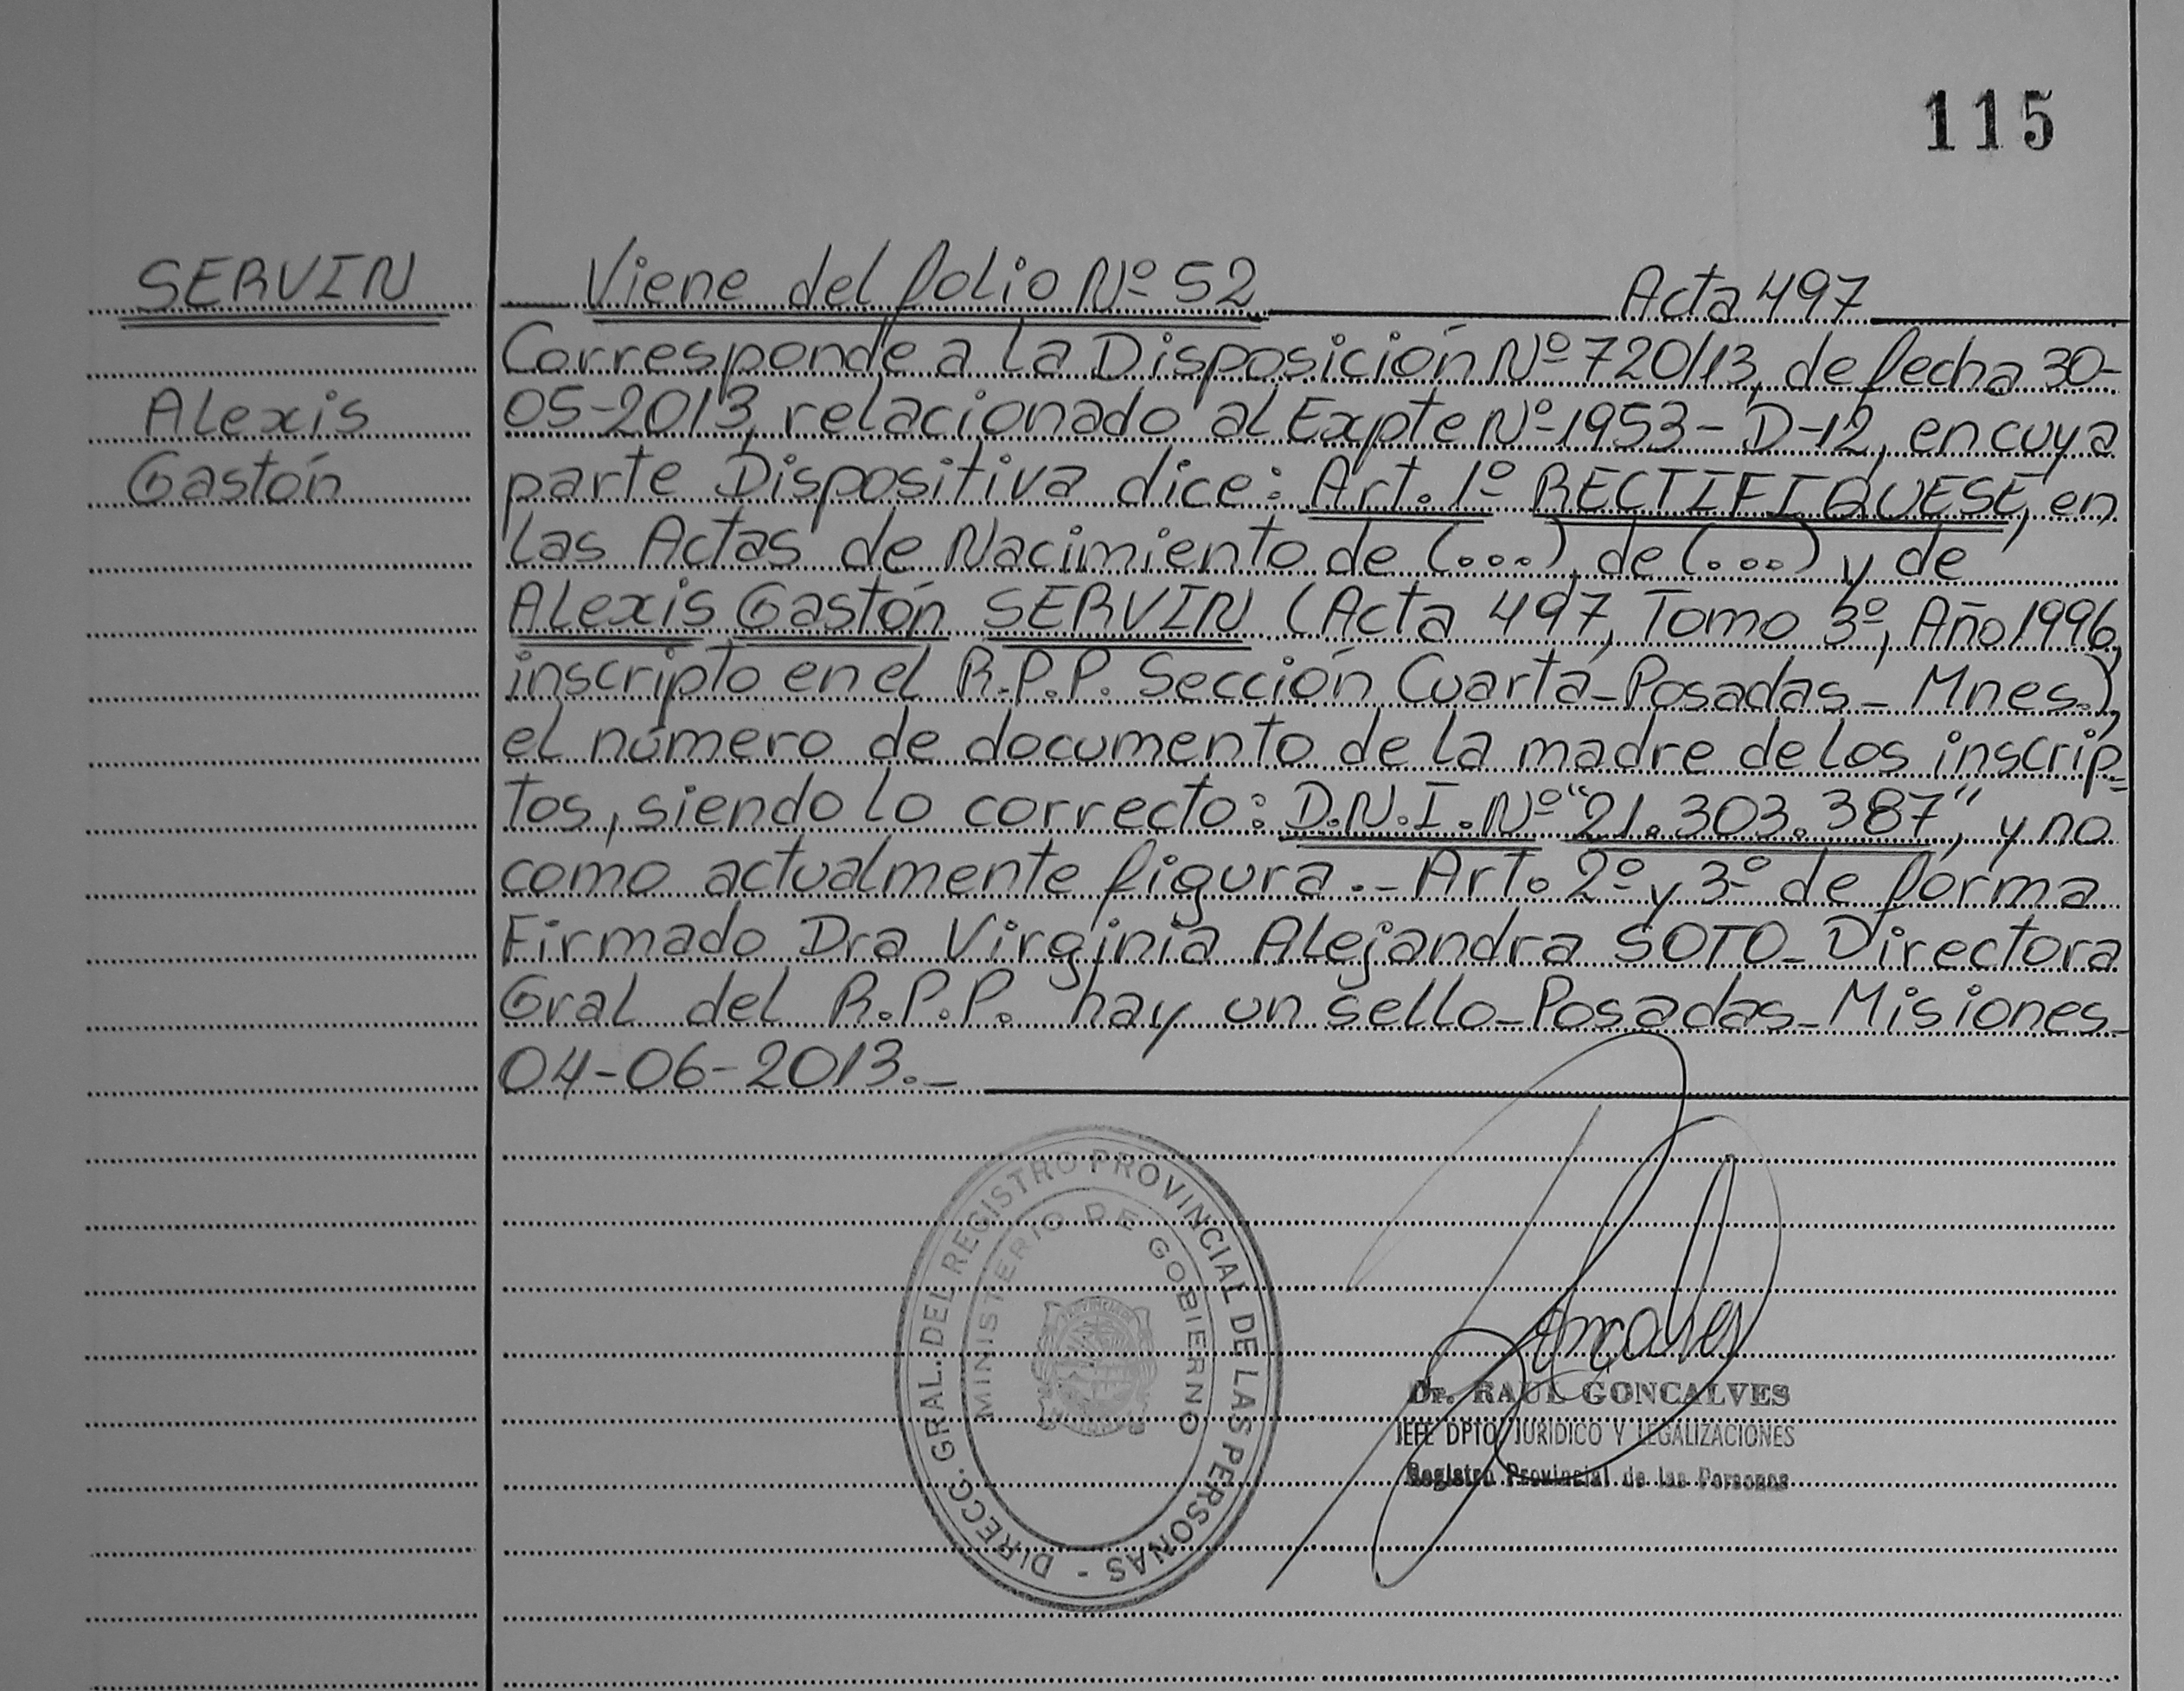 115
SERVIN
Alexis
Gastón
Viene del folio Nº 52 Acta 497
Corresponde a la Disposición Nº 720/13, de fecha 30-
05-2013, relacionado al Expte Nº 1953-D-12, en cuya
parte Dispositiva dice: Art. 1º RECTIFIQUESE, en
las Actas de Nacimiento de (...), de (...) y de
Alexis Gastón SERVIN (Acta 497, Tomo 3º, Año 1996,
inscripto en el R.P.P. Sección Cuarta-Posadas-Mnes.),
el número de documento de la madre de los inscrip=
tos, siendo lo correcto: D.N.I. Nº "21.303.387", y no
como actualmente figura.- Art. 2º y 3º de forma
Firmado Dra Virginia Alejandra SOTO-Directora
Gral del R.P.P. hay un sello-Posadas-Misiones-
04-06-2013.-
DIRECC. GRAL. DEL REGISTRO PROVINCIAL DE LAS PERSONAS -
MINISTERIO DE GOBIERNO
Dr. RAUL GONCALVES
JEFE DPTO. JURIDICO Y LEGALIZACIONES
Registro Provincial de las Personas